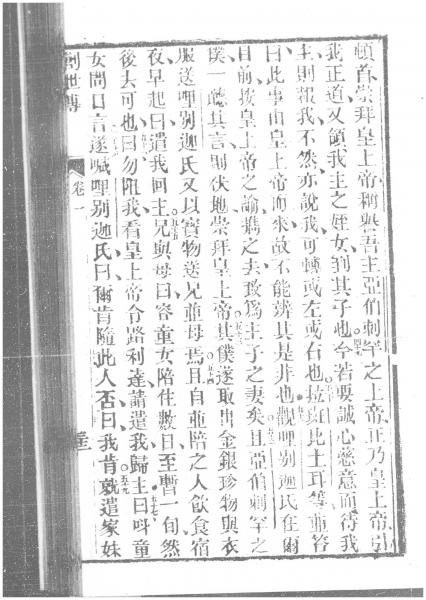 頓首崇拜皇上帝稱譽吾主亞伯刺罕之上帝正乃皇上帝引
我正道又領我主之姪女到其子也今若要誠心慈意而待我
主則報我不然亦說我可轉或左或右也拉班比土耳等並答
曰此事由皇上帝而來故不能辨其是非也觀哩別迦氏在爾
目前按皇上帝之諭攜之去致為主子之妻矣且亞伯刺罕之
僕一聽其言則伏地崇拜皇上帝其僕遂取出金銀珍物與衣
服送哩別迦氏又以寶物送兄並母焉且自並陪之人飲食宿
夜早起曰遣我回主兄與母曰容童女陪住數日至暫一旬然
後去可也曰勿阻我看皇上帝令路利達請遣我歸主曰呼童
女問口言遂喊哩別迦氏曰爾肯隨此人否曰我肯就遣家妹
創世傳
卷一